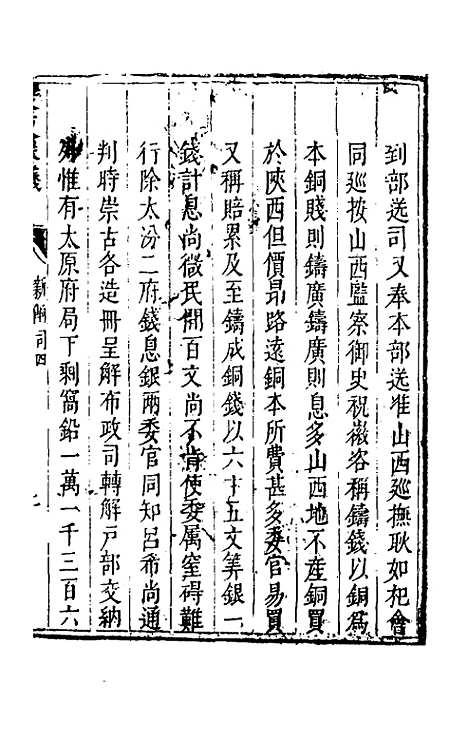 到部送司又奉本部送准山西廵撫耿如杞會
同廵按山西監察御史祝徽咨稱鑄錢以銅爲
本銅賤則鑄廣鑄廣則息多山西地不産銅買
於陝西但價昂路遠銅本所費甚多委官易買
又稱賠累及至鑄成銅錢以六十五文筭銀一
錢計息尚微民間百文尚不肯使委属窒碍難
行除太汾二府錢息銀兩委官同知呂希尚通
判時崇古各造冊呈解布政司轉解戸部交納
惟有太原府局下剩窩鉛一萬一千三百六
新餉司四